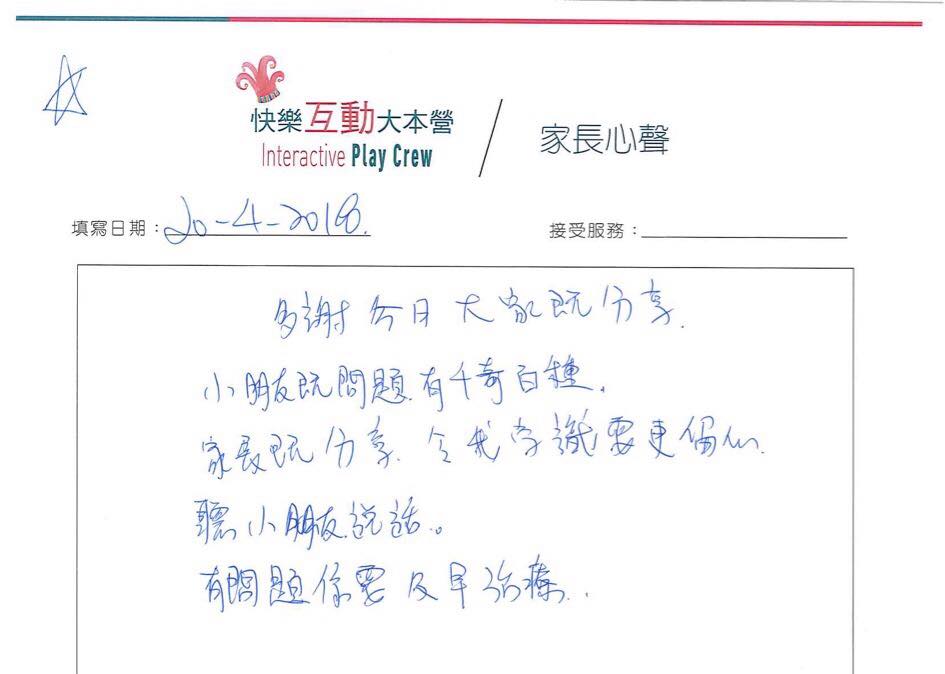 快樂互動大本營
Interactive Play Crew
家長心聲
填寫日期：20-4-2018.
接受服務：
多謝今日大家既分享.
小朋友既問題有千奇百種.
家長既分享.令我学識要更留心
聽小朋友說話。
有問題係要及早治療..